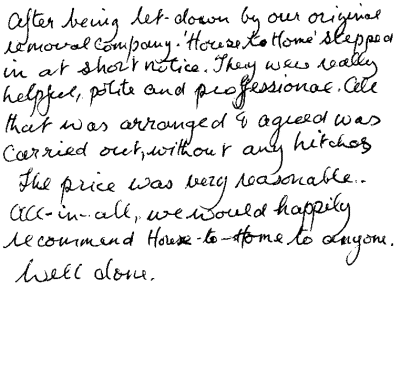 After being let-down by our original
removal company. 'House to Home' stepped
in at short notice. They were really
helpful, polite and professional. All
that was arranged & agreed was
carried out, without any hitches
The price was very reasonable..
All-in-all, we would happily
recommend House-to-Home to anyone.
Well done.